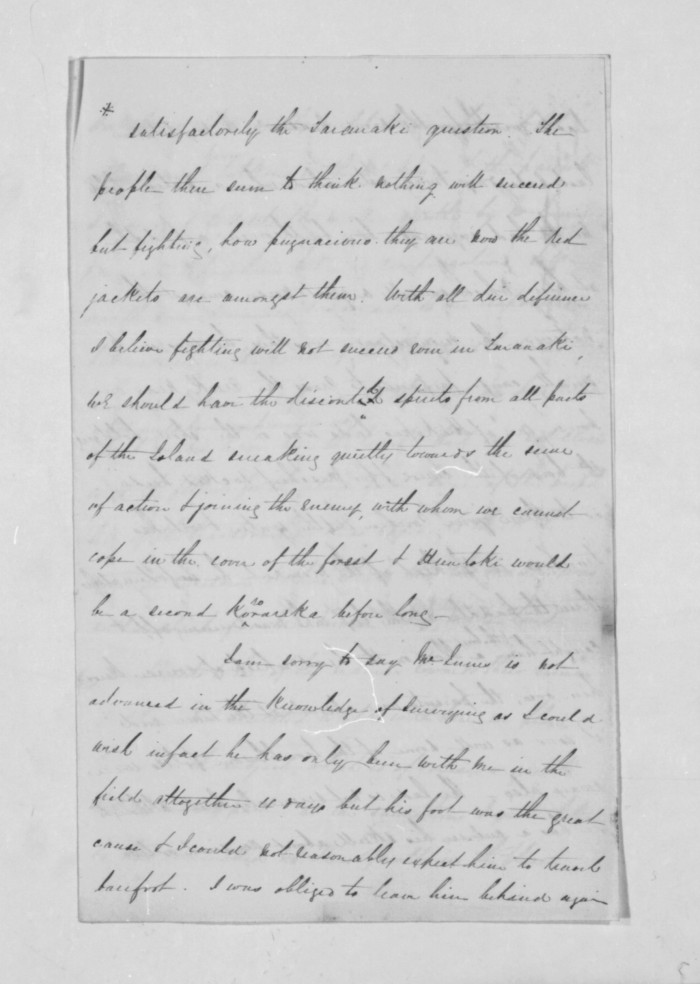 * satisfactorily the Taranaki question. The
people there seem to think nothing will succeed
but fighting, how pugnacious they are now the red
jackets are amongst them. With all due defference
I believe fighting will not succeed even in Taranaki,
we should have the discontd spirits from all parts
of the Island sneaking quietly towards the scene
of action & joining the enemy, with whom we cannot
cope in the cover of the forest & would
be a second before long –
I am sorry to say Mr is not
advanced in the knowledge of Surveying as I could
wish infact he has only been with me in the
field altogether 11 days but his foot was the great
cause & I could not reasonably expect him to travel
barefoot. I was obliged to leave him behind again